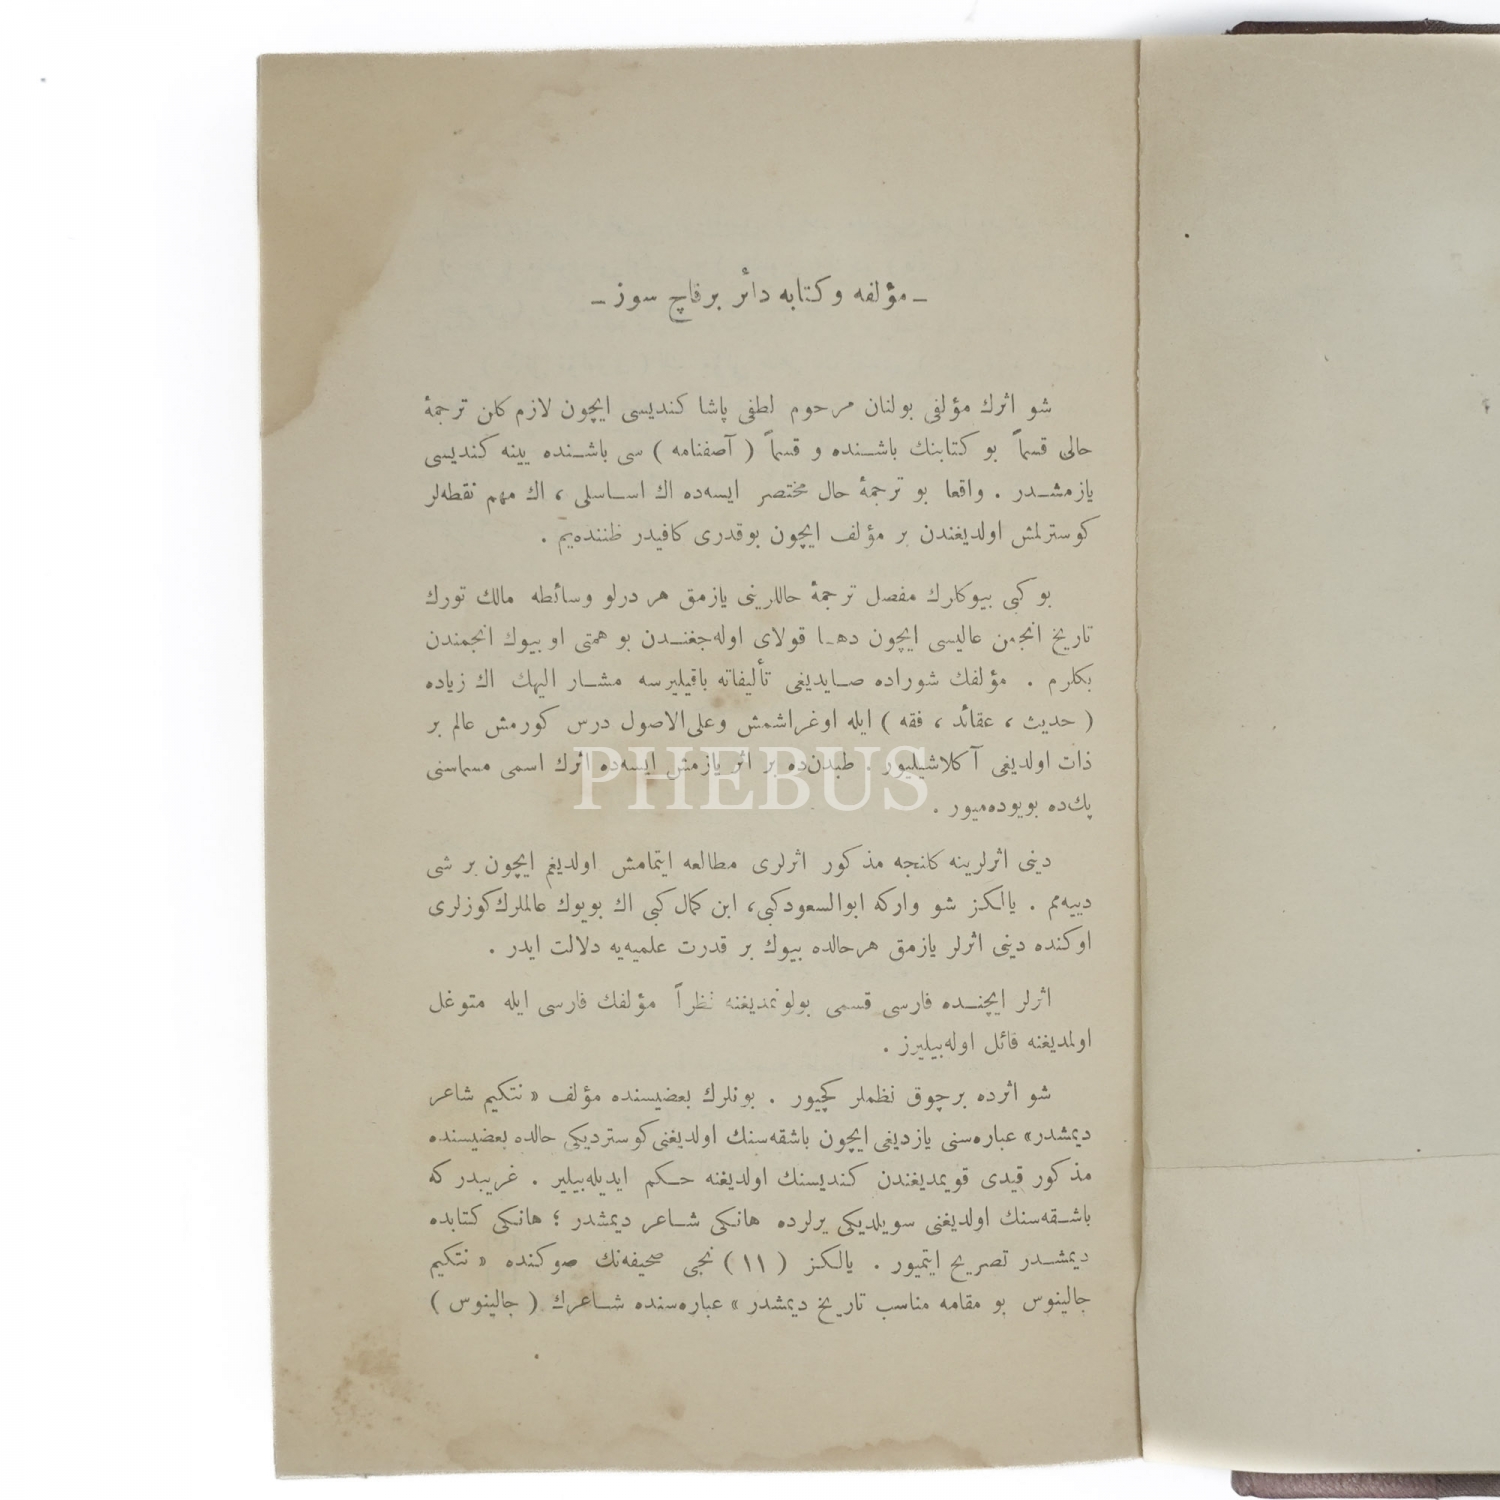 ـ مؤلفه و كتابه دائر برقاچ سوز ـ
شو اثرك مؤلفی بولنان مرحوم لطفی پاشا كندیسی ایچون لازم كلن ترجمهٔ
حالی قسماً بو كتابنك باشنده و قسماً ( آصفنامه ) سی باشنده یینه كندیسی
یازمشدر . واقعا بو ترجمهٔ حال مختصر ایسه‌ده اك اساسلی ، اك مهم نقطه‌لر
كوسترلمش اولدیغندن بر مؤلف ایچون بوقدری كافیدر ظننده‌یم .
بو كبی بیوكلرك مفصل ترجمهٔ حاللرینی یازمق هر درلو وسائطه مالك تورك
تاریخ انجمن عالیسی ایچون دها قولای اوله‌جغندن بو همتی او بیوك انجمندن
بكلرم . مؤلفك شوراده صایدیغی تألیفاته باقیلیرسه مشار الیهك اك زیاده
( حدیث ، عقائد ، فقه ) ایله اوغراشمش وعلی‌الاصول درس كورمش عالم بر
ذات اولدیغی آكلاشیلیور . طبدن‌ده بر اثر یازمش ایسه‌ده اثرك اسمی مسماسنی
پك‌ده بویوده‌میور .
دینی اثرلرینه كلنجه مذكور اثرلری مطالعه ایتمامش اولدیغم ایچون بر شی
دییه‌مم . یالكز شو واركه ابوالسعودكبی، ابن كمال كبی اك بویوك عالملرك كوزلری
اوكنده دینی اثرلر یازمق هرحالده بیوك بر قدرت علمیه‌یه دلالت ایدر .
اثرلر ایچنده فارسی قسمی بولونمدیغنه نظراً مؤلفك فارسی ایله متوغل
اولمدیغنه قائل اوله‌بیلیرز .
شو اثرده برچوق نظملر كچیور . بونلرك بعضیسنده مؤلف « نتكیم شاعر
دیمشدر» عباره‌سنی یازدیغی ایچون باشقه‌سنك اولدیغنی كوستردیكی حالده بعضیسنده
مذكور قیدی قویمدیغندن كندیسنك اولدیغنه حكم ایدیله‌بیلیر . غریبدر كه
باشقه‌سنك اولدیغنی سویلدیكی یرلرده هانكی شاعر دیمشدر ؛ هانكی كتابده
دیمشدر تصریح ایتمیور . یالكز ( ١١ ) نجی صحیفه‌نك صوكنده « نتكیم
جالینوس بو مقامه مناسب تاریخ دیمشدر » عباره‌سنده شاعرك ( جالینوس )
PHEBUS